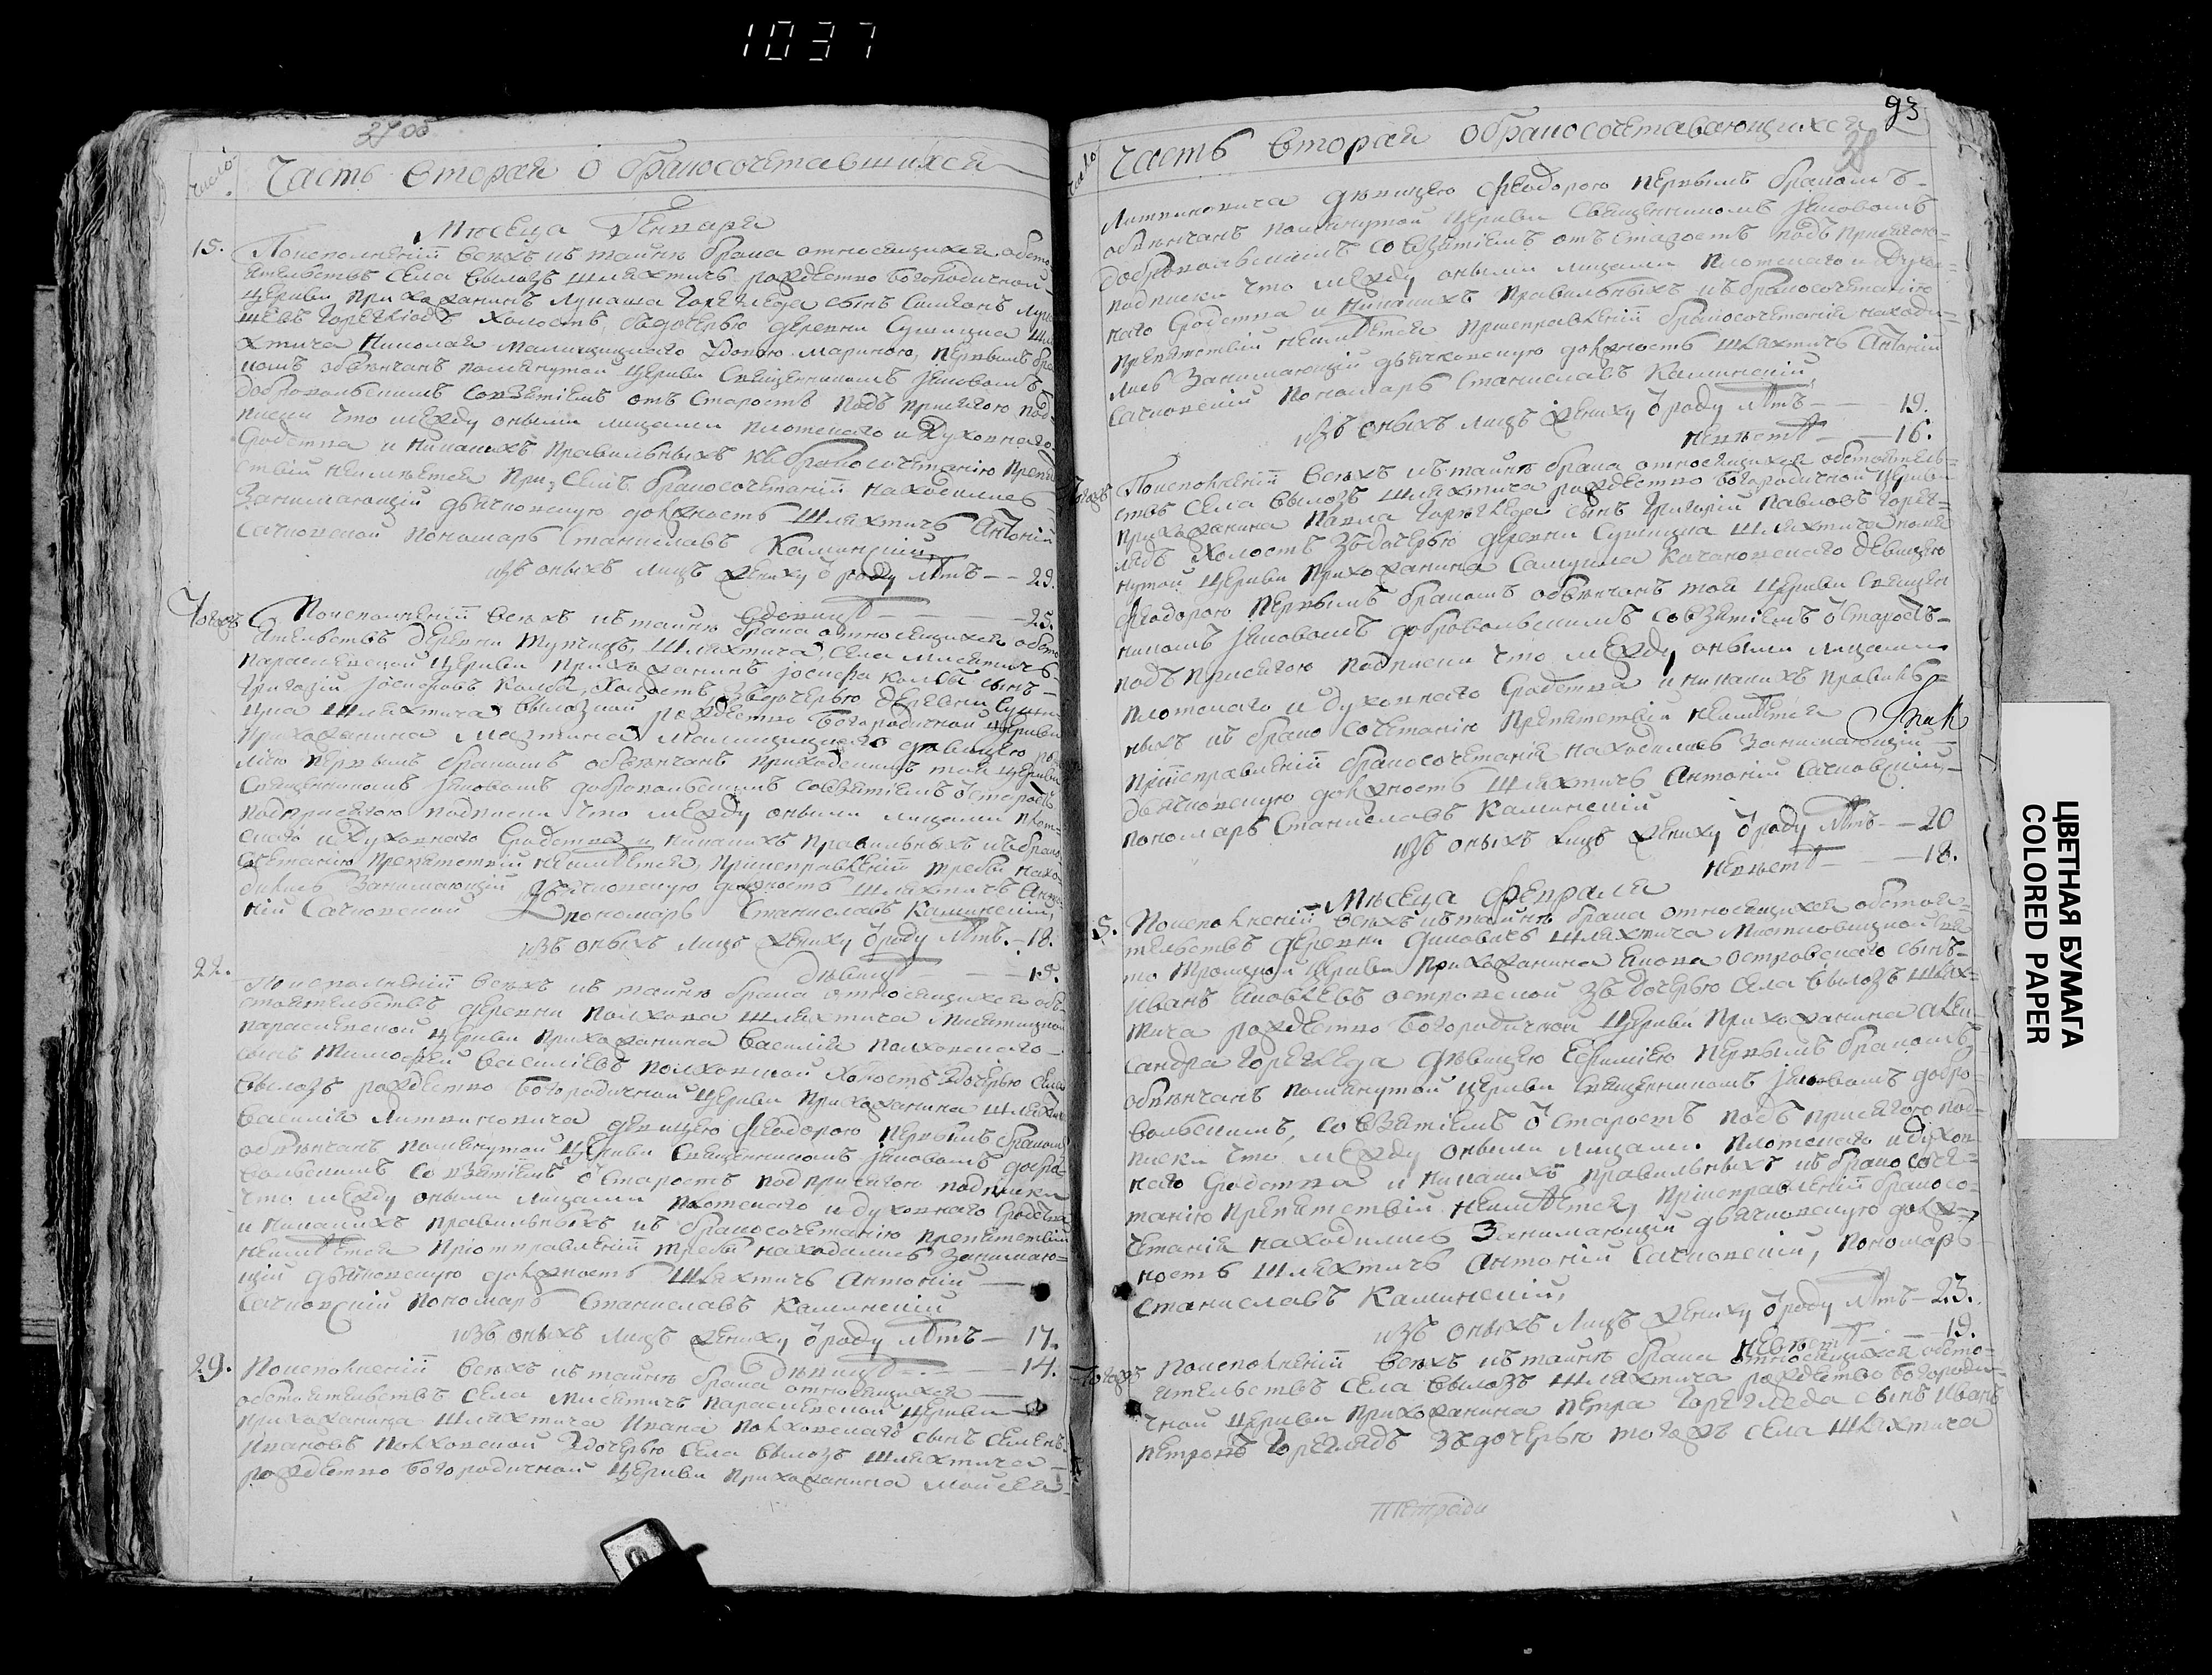 1037
37 об
число
Часть вторая о бракосочетавшихся
Месеца Генваря
15. Поисполнении всехъ къ тайне брака относящихся обсто
ятельствъ села вылазъ шляхтичъ рождество Богородичной
церкви прихожанинъ Лукаша Горегляда сынъ Симеонъ Лука
шевъ Гореглядъ холостъ, съдочерью деревни Сушицка шля
хтича Николая Малишицкаго вдовою Мариною, первымъ бра
комъ обвенчанъ помянутой церкви Священникомъ Яковомъ
Добровольскимъ совзятiемъ отъ Старостъ подъ присягою под
писки что между оными лицами плотскаго и Духовнаго
Сродства и никакихъ правильныхъ къ бракосочетанiю препят
ствiй неимеется при, семъ бракосочетанiи находились
Занимающiй дьячковскую должность Шляхтичъ Антонiй
Сачковской пономарь Станиславъ Каминскiй
изъ оныхъ лицъ жениху ѿ роду летъ — 29.
вдовице — 25.
Тогожъ Поисполненiи всехъ къ тайне брака относящихся обсто
ятельствъ деревни Тупчицъ, шляхтича, села Мисятичъ
параскевской церкви прихожанинъ Iосифа Колба сынъ
Григорiй Iосифовъ Колба, холостъ, Здочерью деревни Сушиц
цка шляхтича вылазкой рождество Богородичной церкви
прихожанина Мартина Малишицкаго девицею Ю
лiю первымъ бракомъ обвенчанъ приходскимъ той церкви
Священникомъ Яковомъ добровольскимъ совзятiемъ ѿ старостъ
подприсягою подписки что между оными лицами плот
скаго и Духовнаго Сродства и никакихъ правильныхъ къ брако
сочетанiю препятствiй неимеется, приисправленiи требы нахо
дились Занимающiй Дьячковскую должность шляхтичъ Анто
нiй Сачковской пономарь Станиславъ Каминскiй,
изъ оныхъ лицъ жениху ѿ роду летъ. — 18.
девице — 15.
22. Поисполненiи всехъ къ тайне брака относящихся об
стоятельствъ деревни Полкова шляхтича Мисятицкой
параскевской церкви прихожанина Василiя Полховскаго
сынъ Тимофей Василiевъ Полховской холостъ Здочерью села
вылазъ рождество Богородичной церкви прихожанина шляхти
Василiя Литвиновича девицею Феодорою первымъ бракомъ
обвенчанъ помянутой церкви Священникомъ Яковомъ добро
вольскимъ со взятiемъ ѿ Старостъ подприсягою подписки
что между оными лицами плотскаго и духовнаго Сродства
и никакихъ правильныхъ къ бракосочетанiю препятствiй
неимеется приотправленiи требы находились Занимаю
щiй дьячковскую должность Шляхтичъ Антонiй
Сачковскiй пономарь Станиславъ Каминскiй
изъ оныхъ лицъ жениху ѿ роду летъ — 17.
девице — 14.
29. Поисполненiи всехъ къ тайне брака относящихся
обстоятельствъ села Мисятичъ параскевской церкви
прихожанина шляхтича Ивана Полховскаго сынъ Семенъ
Ивановъ Полховской Здочерью села вылазъ шляхтича
рождество Богородичной церкви прихожанина Мойсея
93
38
число
Часть вторая о бракосочетавающихся
Литвиновича девицею Феодорою первымъ бракомъ
обвенчанъ помянутой церкви Священникомъ Яковомъ
Добровольскимъ со взятiемъ отъ старостъ подъ присягою
подписки что между оными лицами плотскаго и Духов
наго Сродства и никакихъ правильныхъ къ бракосочетанiю
препятствiй неимеется приисправленiи бракосочетанiя находи
лись Занимающiй дьячковскую должность шляхтичъ Антонiй
Сачковскiй пономарь Станиславъ Каминскiй
изъ оныхъ лицъ жениху ѿ роду летъ — 19.
невесте — 16.
Тогожъ Поисполненiи всехъ къ тайне брака относящихся обстоятель
ствъ села вылазъ шляхтича рождество богородичной церкви
прихожанина Павла Горегляда сынъ Григорiй Павловъ Горег
лядъ холостъ Здочерью деревни Сушицка шляхтича помя
нутой церкви прихожанина Самуила Качановскаго девицею
Феодорою первымъ бракомъ обвенчанъ той церкви Священ
никомъ Яковомъ добровольскимъ совзятiемъ ѿ старостъ
подъ присягою подписки что между оными лицами
плотскаго и духовнаго Сродства и никакихъ правиль
ныхъ къ бракосочетанiю препятствiй неимеется
приисправленiи бракосочетанiя находились Занимающiй
дьячковскую должность шляхтичъ Антонiй Сачковскiй,
пономарь Станиславъ Каминскiй
изъ оныхъ лицъ жениху ѿ роду летъ — 20
невесте — 18.
Месеца Февраля
5. Поисполненiй всехъ къ тайне брака относящихся обстоя
тельствъ деревни шляхтича
то Троицкой церкви прихожанина Якова Островскаго сынъ
Иванъ Яковлевъ островской Здочерью села вылазъ шлях
тича рождество Богородичной церкви прихожанина Алек
сандра Горегляда девицею Ефимiею первымъ бракомъ
обвенчанъ помянутой церкви Священникомъ Яковомъ добро
вольскимъ, со взятiемъ ѿ Старостъ подъ присягою под
писки что между оными лицами плотскаго и духов
наго Сродства и никакихъ правильныхъ къ бракосоче
танiю препятствiй неимеется, приисправленiи бракосо
четанiя находились Занимающiй дьячковскую долж
ность шляхтичъ Антонiй Сачковскiй, пономарь
Станиславъ Каминскiй,
изъ оныхъ лицъ жениху ѿ роду летъ — 23.
невесте — 19.
Тогожъ Поисполненiи всехъ къ тайне брака относящихся обсто
ятельствъ села вылазъ шляхтича рождество богороди
чной церкви прихожанина Петра Горегляда сынъ Иванъ
Петровъ Гореглядъ Здочерью тогожъ села шляхтича
Тетради
ЦВЕТНАЯ БУМАГА
COLORED PAPER